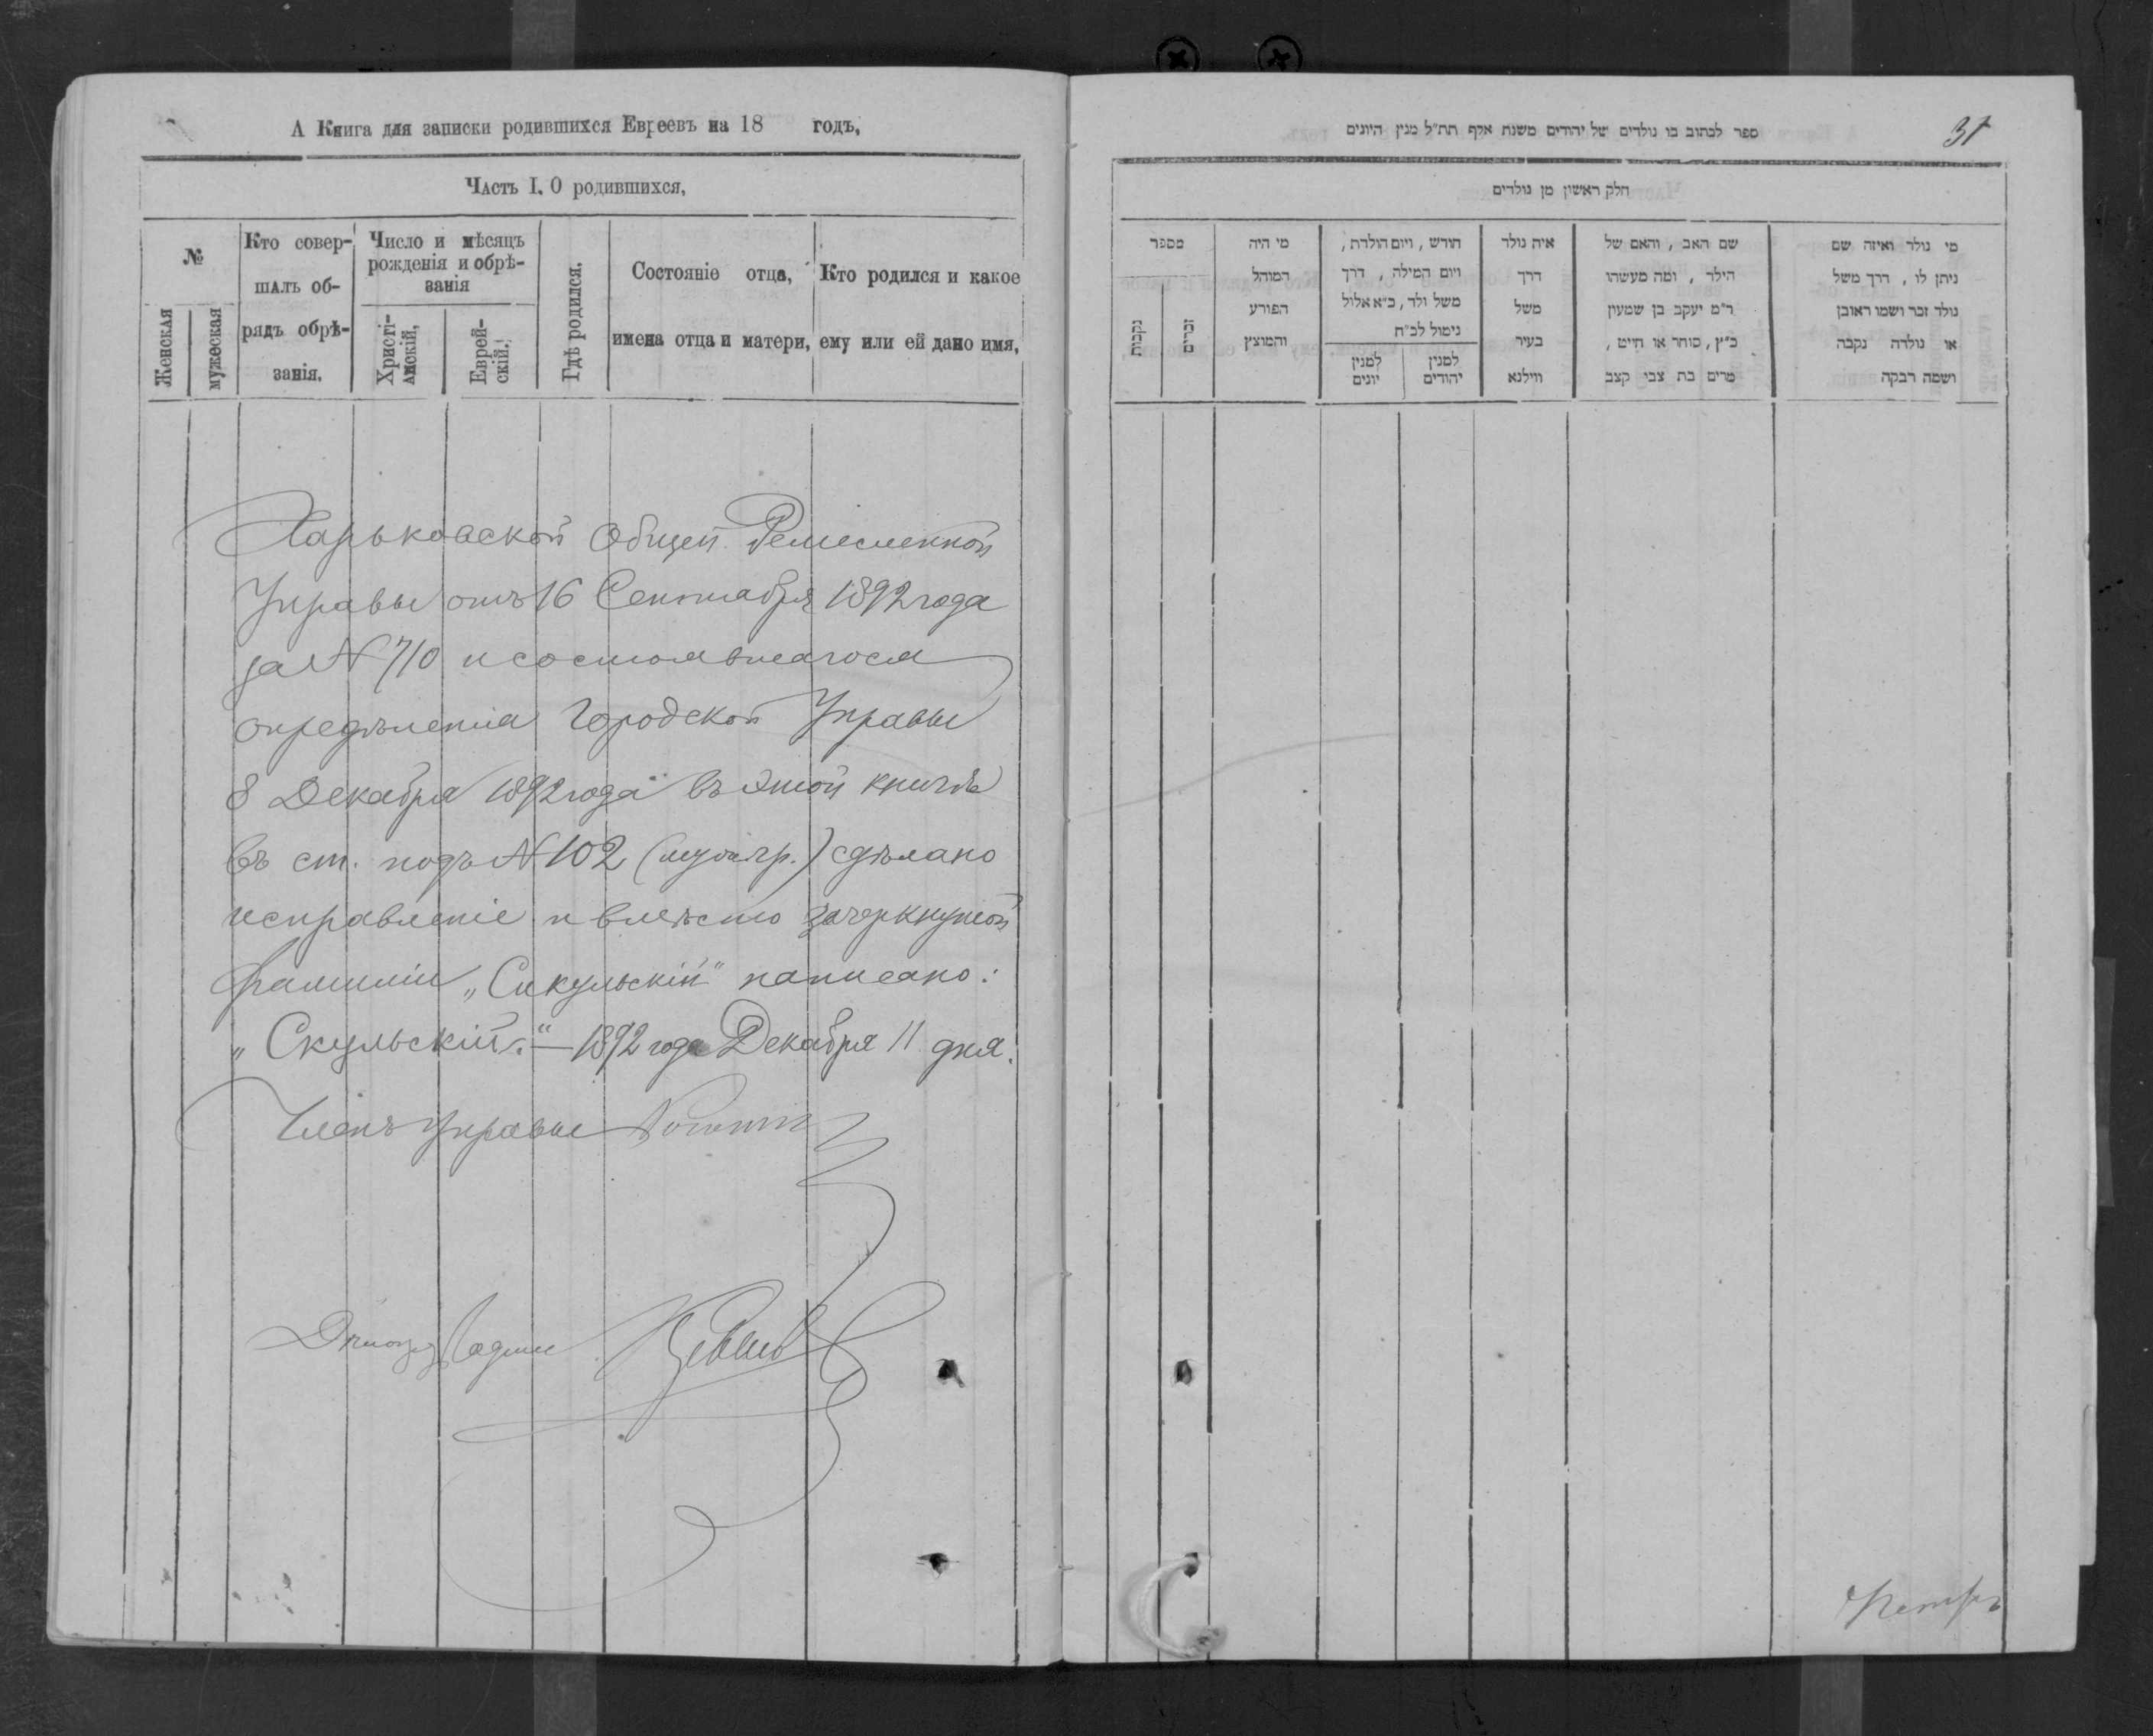 А Книга для записки родившихся Евреевъ на 18 годъ,
Часть I. О родившихся,
№
Женская
мужеская
Кто совер-
шалъ об-
рядъ обрѣ-
занія.
Число и мѣсяцъ
рожденія и обрѣ-
занія
Христі-
анскій,
Еврей-
скій.
Гдѣ родился.
Состояніе отца,
имена отца и матери,
Кто родился и какое
ему или ей дано имя,
Харьковской Общей Ремесленной
Управы отъ 16 Сентября 1892 года
за № 710 и состоявшагося
опредѣленія Городской Управы
8 Декабря 1892 года въ этой книгѣ
въ ст. подъ № 102 (муж. гр.) сдѣлано
исправленіе и вмѣсто зачеркнутой
фамиліи „Сикульскій" написано:
„Скульскій."— 1892 года Декабря 11 дня.
Членъ Управы
ספר לכתוב בו נולדים של יהודים משנת אלף תת״ל מנין היונים
31
חלק ראשון מן נולדים
מספר
נקבות
זכרים
מי היה
המוהל
הפורע
והמוצץ
חודש, ויום הולדת,
ויום המילה, דרך
משל ולד, כ״א אלול
נימול לכ״ח
למנין
יונים
למנין
יהודים
איה נולד
דרך
משל
בעיר
ווילנא
שם האב, והאם של
הילד, ומה מעשהו
ר״מ יעקב בן שמעון
כ״ץ, סוחר או חייט,
מרים בת צבי קצב
מי נולד ואיזה שם
ניתן לו, דרך משל
נולד זכר ושמו ראובן
או נולדה נקבה
ושמה רבקה